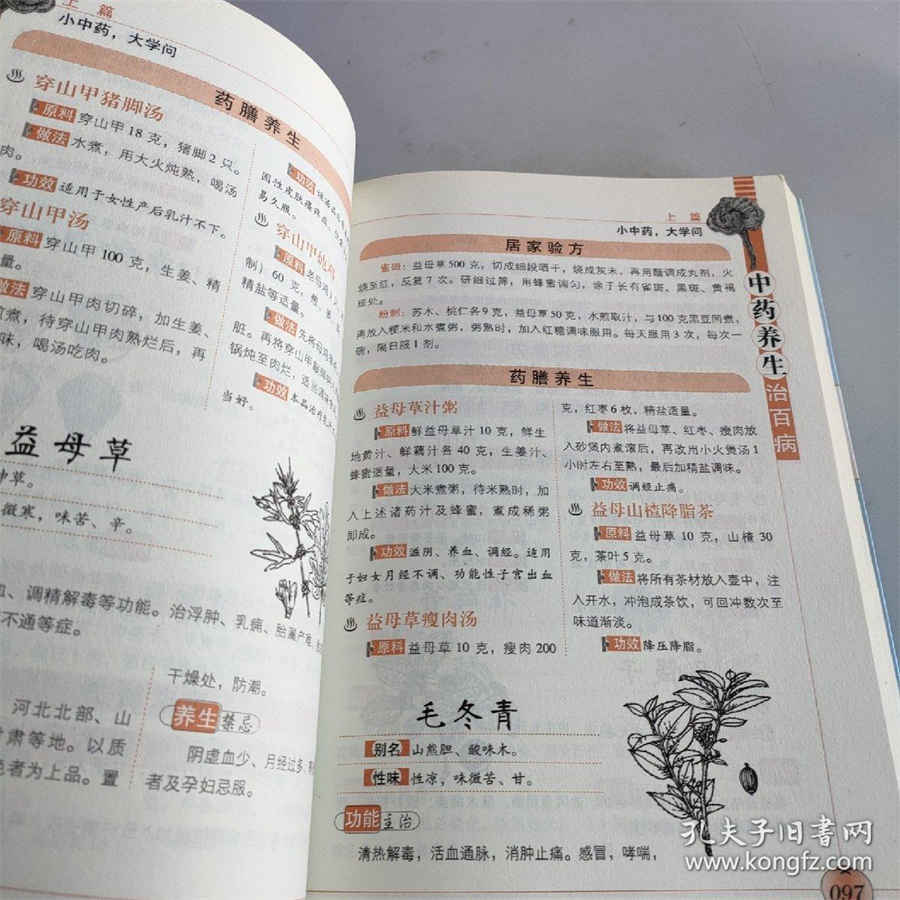 上篇
小中药，大学问
药膳养生
穿山甲猪脚汤
原料 穿山甲18克，猪脚2只。
做法 水煮，用大火炖熟，喝汤
肉。
功效 适用于女性产后乳汁不下。
穿山甲汤
原料 穿山甲100克，生姜、精
量。
做法 穿山甲肉切碎，加生姜、
煮，待穿山甲肉熟烂后，再
味，喝汤吃肉。
功效
易久服。
穿山甲
原料
制）60克，
精盐等适量。
做法
脏。再将穿山甲
锅炖至肉烂，
功效
当好。
益母草
冲草。
微寒，味苦、辛。
、调精解毒等功能。治浮肿、乳痈、胎漏产难、
不通等症。
河北北部、山
甘肃等地。以质
者为上品。置
干燥处，防潮。
养生禁忌
阴虚血少、月经过多
者及孕妇忌服。
上篇
小中药，大学问
居家验方
雀斑：益母草500克，切成细段晒干，烧成灰末，再用醋调成丸剂，火
烧至红，反复7次。研细过筛，用蜂蜜调匀，涂于长有雀斑、黑斑、黄褐
斑处。
粉刺：苏木、桃仁各9克，益母草50克，水煎取汁，与100克黑豆同煮，
再放入粳米和水煮粥，粥熟时，加入红糖调味服用。每天服用3次，每次一
碗，隔日服1剂。
药膳养生
益母草汁粥
原料 鲜益母草汁10克，鲜生
地黄汁、鲜藕汁各40克，生姜汁、
蜂蜜适量，大米100克。
做法 大米煮粥，待米熟时，加
入上述诸药汁及蜂蜜，煮成稀粥
即成。
功效 滋阴、养血、调经。适用
于妇女月经不调、功能性子宫出血
等症。
益母草瘦肉汤
原料 益母草10克，瘦肉200
克，红枣6枚，精盐适量。
做法 将益母草、红枣、瘦肉放
入砂煲内煮滚后，再改用小火煲汤1
小时左右至熟，最后加精盐调味。
功效 调经止痛。
益母山楂降脂茶
原料 益母草10克，山楂30
克，茶叶5克。
做法 将所有茶材放入壶中，注
入开水，冲泡成茶饮，可回冲数次至
味道渐淡。
功效 降压降脂。
毛冬青
别名 山熊胆、酸味木。
性味 性凉，味微苦、甘。
功能主治
清热解毒，活血通脉，消肿止痛。感冒，哮喘，
中药养生
治百病
097
孔夫子旧书网
www.kongfz.com